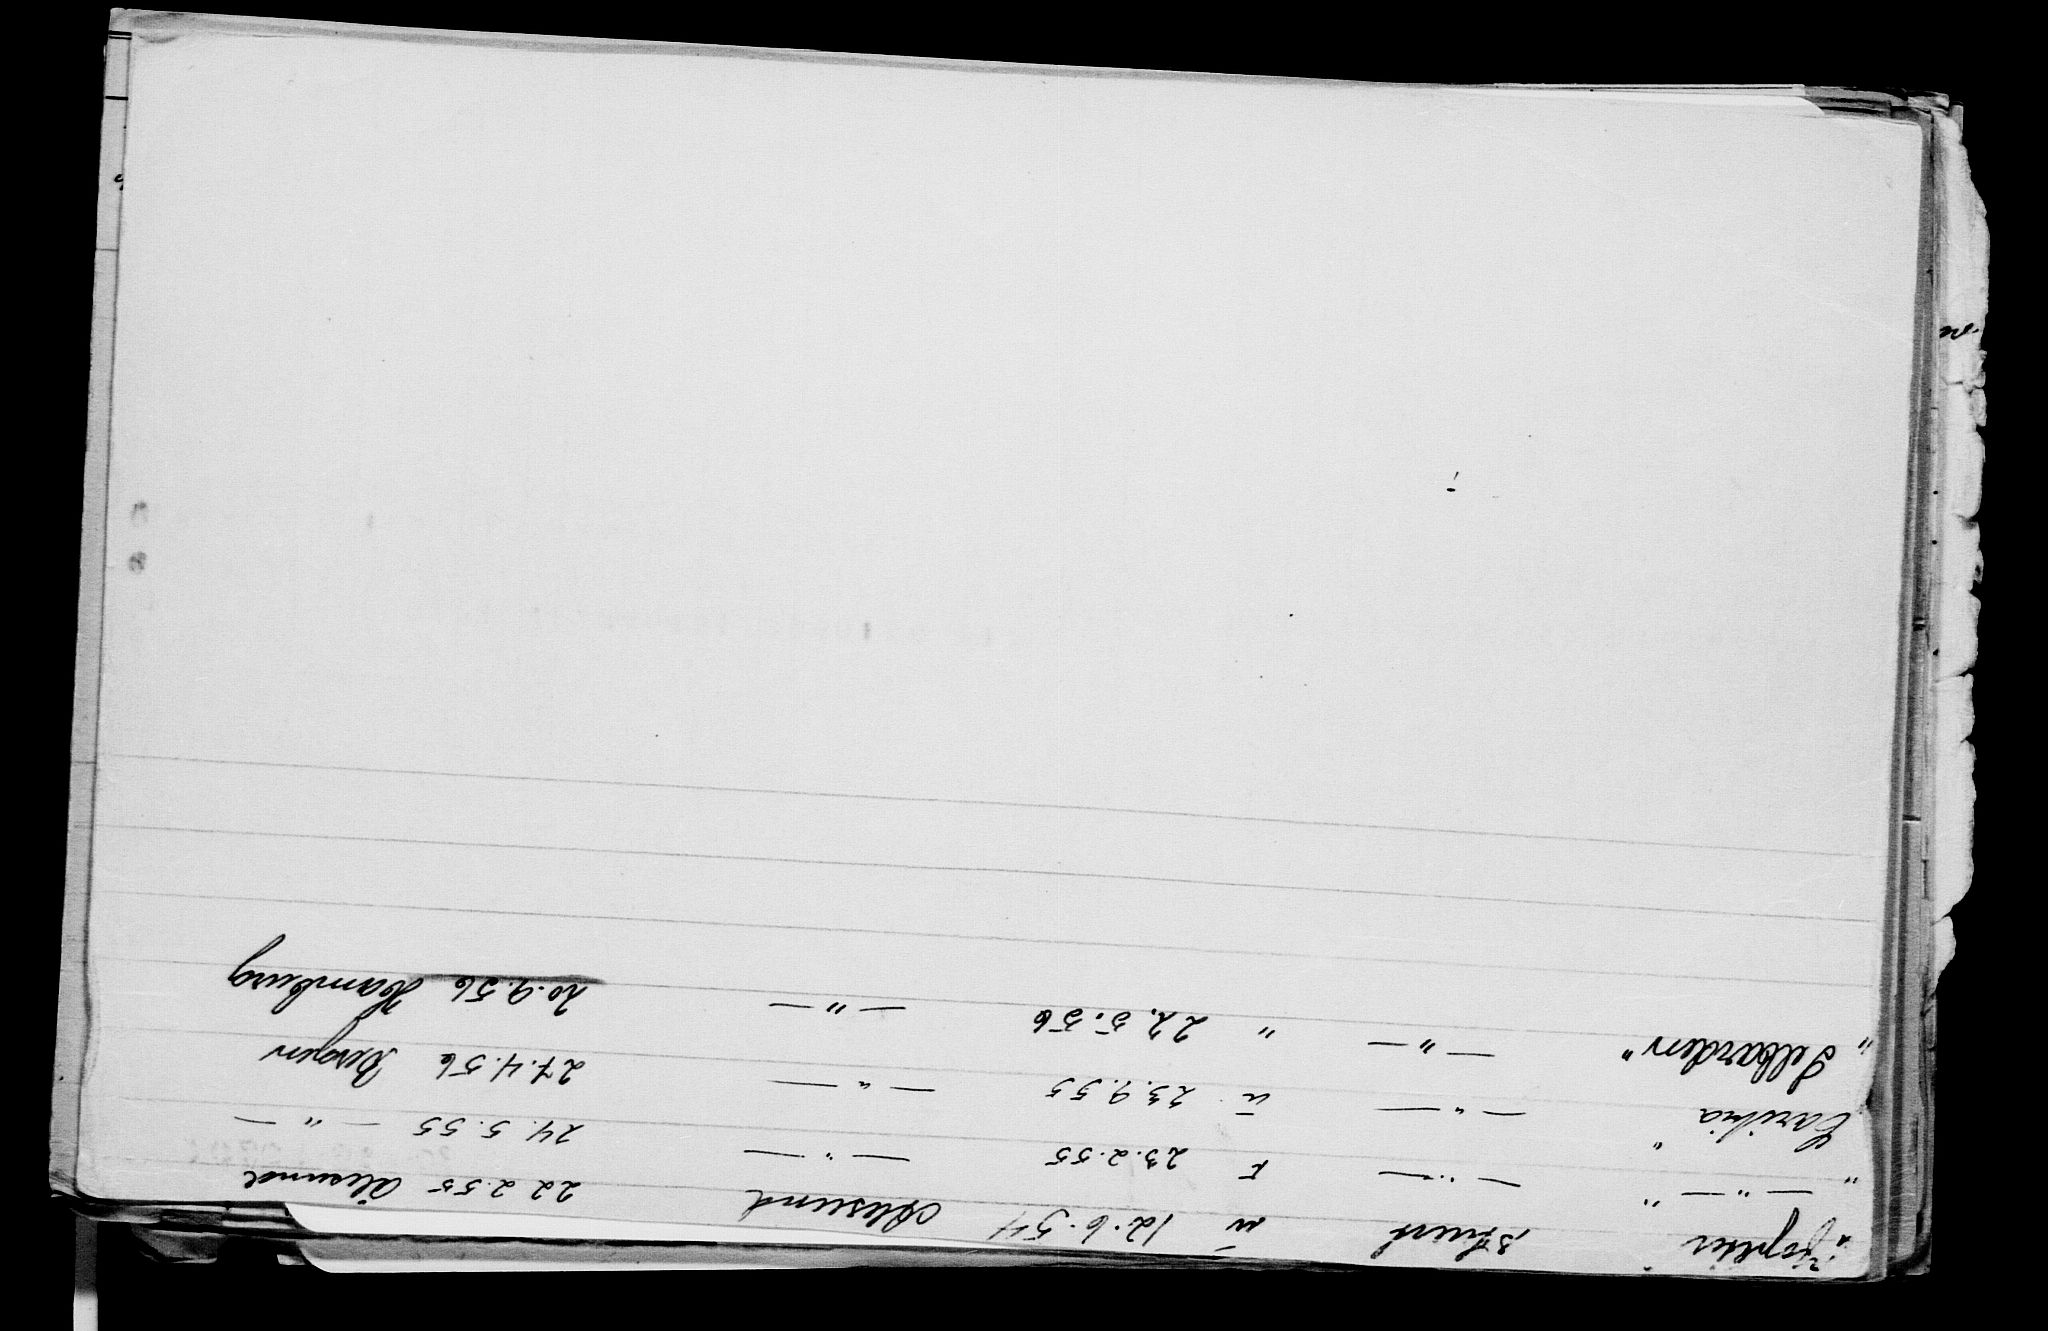 "Jopeter" 3 Stuert ū 12.6.54 Aalesund 22 2.55 Ålesund
" — " — " — " — F 23.2.55 — " — 24.5.55 — " —
Caribia " — " — ū 23.9.55 — " — 27.4.56 Bergen
" Selbarden " — " — " 22.5.56 — " — 20.9.56 Hamburg